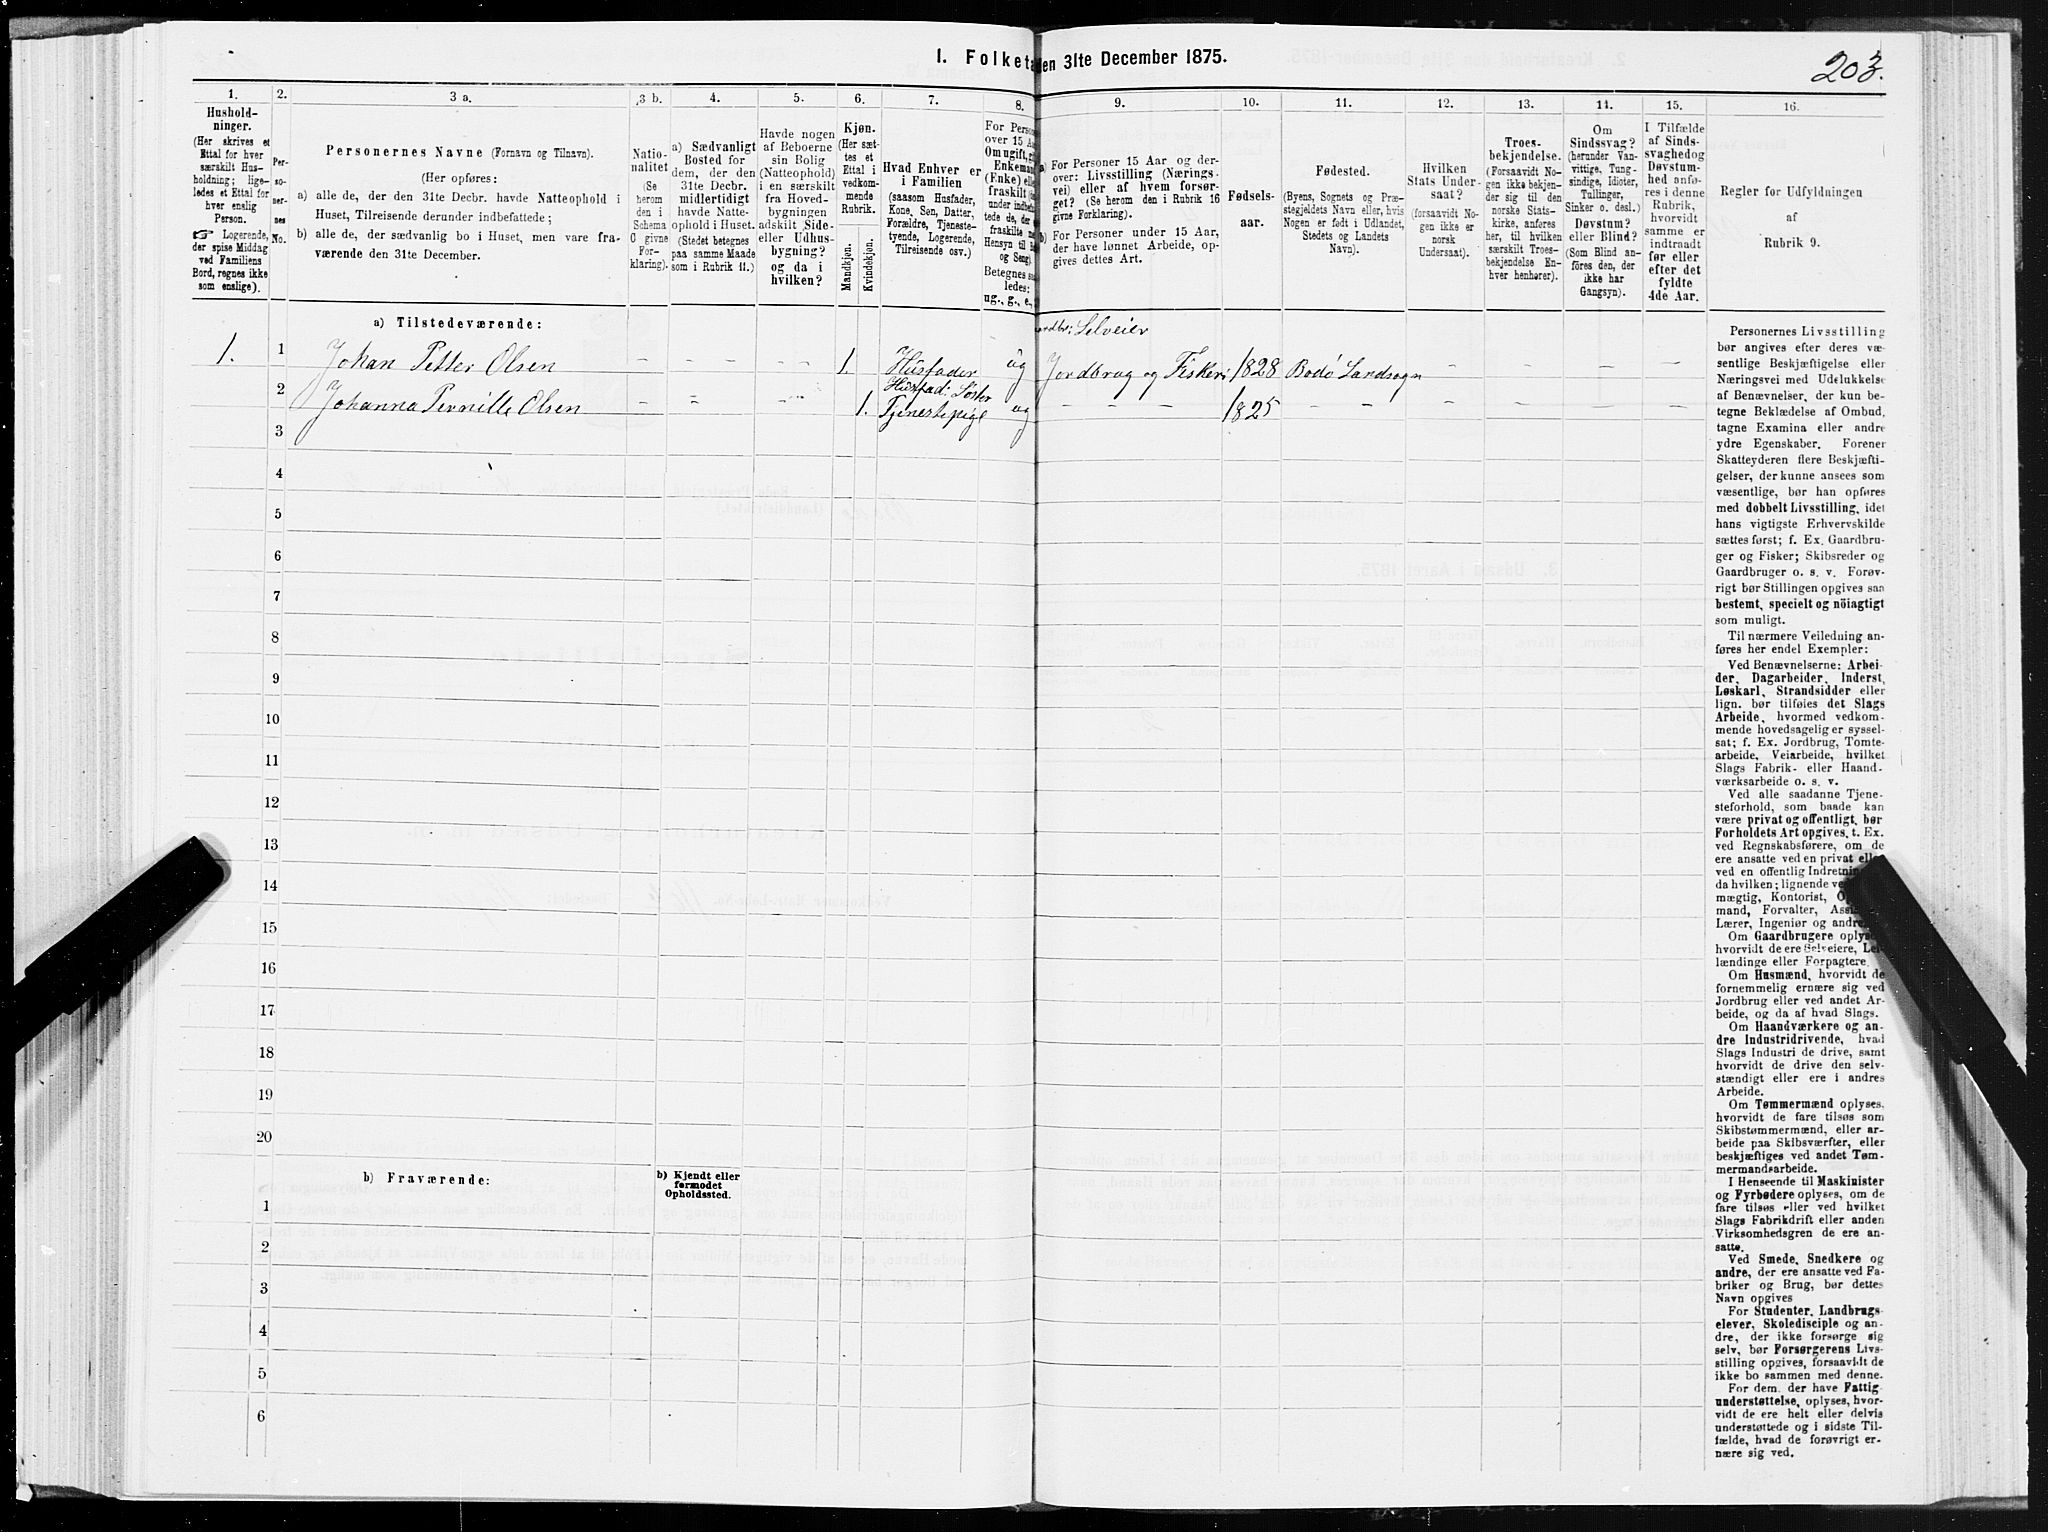 I. Folketa
en 31te December 1875.
203.
1.
2.
3 a.
3 b.
4.
5.
6.
7.
8.
9.
10.
11.
12.
13.
14.
15.
16.
Hushold-
ninger.
(Her skrives et
Ettal for hver
særskilt Hus-
holdning; lige-
ledes et Ettal for
hver enslig
Person.
☞ Logerende,
der spise Middag
ved Familiens
Bord, regnes ikke
som enslige).
Per-
so-
ner-
nes
No.
Personernes Navne (Fornavn og Tilnavn).
(Her opføres:
a) alle de, der den 31te Decbr. havde Natteophold i
Huset, Tilreisende derunder indbefattede;
b) alle de, der sædvanlig bo i Huset, men vare fra-
værende den 31te December.
Natio-
nalitet
(Se
herom
den i
Schema
C givne
For-
klaring).
a) Sædvanligt
Bosted for
dem, der den
31te Decbr.
midlertidigt
havde Natte-
ophold i Huset.
(Stedet betegnes
paa samme Maade
som i Rubrik 11.)
Havde nogen
af Beboerne
sin Bolig
(Natteophold)
i en særskilt
fra Hoved-
bygningen
adskilt Side-
eller Udhus-
bygning?
og da i
hvilken?
Kjøn.
(Her sæt-
tes et
Ettal i
vedkom-
mende
Rubrik.
Mandkjøn.
Kvindekjøn.
Hvad Enhver er
i Familien
(saasom Husfader,
Kone, Søn, Datter,
Forældre, Tjeneste-
tyende, Logerende,
Tilreisende osv.)
For Perso
over 15 Aar
Om ugift, g
Enkemand
(Enke) elle
fraskilt
Hensyn til B
og Seng).
Betegnes saa
ledes:
ug., g., e.,
a) For Personer 15 Aar og der-
over: Livsstilling (Nærings-
vei) eller af hvem forsør-
get? (Se herom den i Rubrik 16
givne Forklaring).
b) For Personer under 15 Aar,
der have lønnet Arbeide, op-
gives dettes Art.
Fødsels-
aar.
Fødested.
(Byens, Sognets og Præ-
stegjeldets Navn eller, hvis
Nogen er født i Udlandet,
Stedets og Landets
Navn).
Hvilken
Stats Under-
saat?
(forsaavidt No-
gen ikke er
norsk
Undersaat).
Troes-
bekjendelse.
(Forsaavidt No-
gen ikke bekjen-
der sig til den
norske Stats-
kirke, anføres
her, til hvilken
særskilt Troes-
bekjendelse En-
hver henhører).
Om
Sindssvag?
(herunder Van-
vittige, Tung-
sindige, Idioter,
Tullinger,
Sinker o. desl.)
Døvstum?
eller Blind?
(Som Blind an-
føres den, der
ikke har
Gangsyn).
I Tilfælde
af Sinds-
svaghed og
Døvstum-
hed anfø-
res i denne
Rubrik,
hvorvidt
samme er
indtraadt
før eller
efter det
fyldte
4de Aar.
Regler for Udfyldningen
af
Rubrik 9.
a) Tilstedeværende:
Jordbr: Selveier
1. 1 Johan Petter Olsen – – – – 1. Husfader ug Jordbrug og Fiskeri 1828 Bodø Landsogn – – – –
Husfad: Søster
2 Johanna Pernille Olsen – – – – 1. Tjenestepige ug – – – – 1825 – – – – – – –
3
4
5
6
7
8
9
10
11
12
13
14
15
16
17
18
19
20
b) Fraværende:
b) Kjendt eller
formodet
Opholdssted.
1
2
3
4
5
6
Personernes Livsstilling
bør angives efter deres væ-
sentlige Beskjæftigelse eller
Næringsvei med Udelukkelse
af Benævnelser, der kun be-
tegne Beklædelse af Ombud,
tagne Examina eller andre
ydre Egenskaber. Forener
Skatteyderen flere Beskjæfti-
gelser, der kunne ansees som
væsentlige, bør han opføres
med dobbelt Livsstilling, idet
hans vigtigste Erhvervskilde
sættes først; f. Ex. Gaardbru-
ger og Fisker; Skibsreder og
Gaardbruger o. s. v. Forøv-
rigt bør Stillingen opgives saa
bestemt, specielt og nöiagtigt
som muligt.
Til nærmere Veiledning an-
føres her endel Exempler:
Ved Benævnelserne: Arbei-
der, Dagarbeider, Inderst,
Løskarl, Strandsidder eller
lign. bør tilføies det Slags
Arbeide, hvormed vedkom-
mende hovedsagelig er syssel-
sat; f. Ex. Jordbrug, Tomte-
arbeide, Veiarbeide, hvilket
Slags Fabrik- eller Haand-
værksarbeide o. s. v.
Ved alle saadanne Tjene-
steforhold, som baade kan
være privat og offentligt, bør
Forholdets Art opgives, t. Ex.
ved Regnskabsførere, om de
ere ansatte ved en privat elle
ved en offentlig Indretnin
da hvilken; lignende ve
mægtig, Kontorist, O
mand, Forvalter, Assis
Lærer, Ingeniør og andre
Om Gaardbrugere oplyse
hvorvidt de ere Selveiere, Lei-
lændinge eller Forpagtere.
Om Husmænd, hvorvidt de
fornemmelig ernære sig ved
Jordbrug eller ved andet Ar-
beide, og da af hvad Slags.
Om Haandværkere og an-
dre Industridrivende, hvad
Slags Industri de drive, samt
hvorvidt de drive den selv-
stændigt eller ere i andres
Arbeide.
Om Tømmermænd oplyses,
hvorvidt de fare tilsøs som
Skibstømmermænd, eller ar-
beide paa Skibsværfter, eller
beskjæftiges ved andet Tøm-
mermandsarbeide.
I Henseende til Maskinister
og Fyrbødere oplyses, om de
fare tilsøs eller ved hvilket
Slags Fabrikdrift eller anden
Virksomhedsgren de ere an-
satte.
Ved Smede, Snedkere og
andre, der ere ansatte ved Fa-
briker og Brug, bør dettes
Navn opgives
For Studenter, Landbrugs-
elever, Skoledisciple og an-
dre, der ikke forsørge sig
selv, bør Forsørgerens Livs-
stilling opgives, forsaavidt de
ikke bo sammen med denne.
For dem, der have Fattig-
understøttelse, oplyses, hvor-
vidt de ere helt eller delvis
understøttede og i sidste Til-
fælde, hvad de forøvrigt er-
nære sig ved.